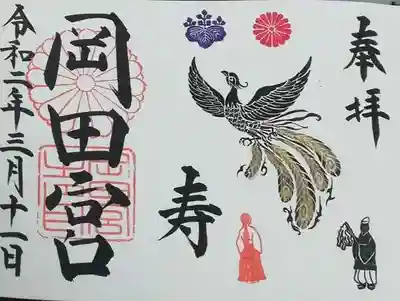 奉拝
寿
岡田宮
令和二年三月十一日